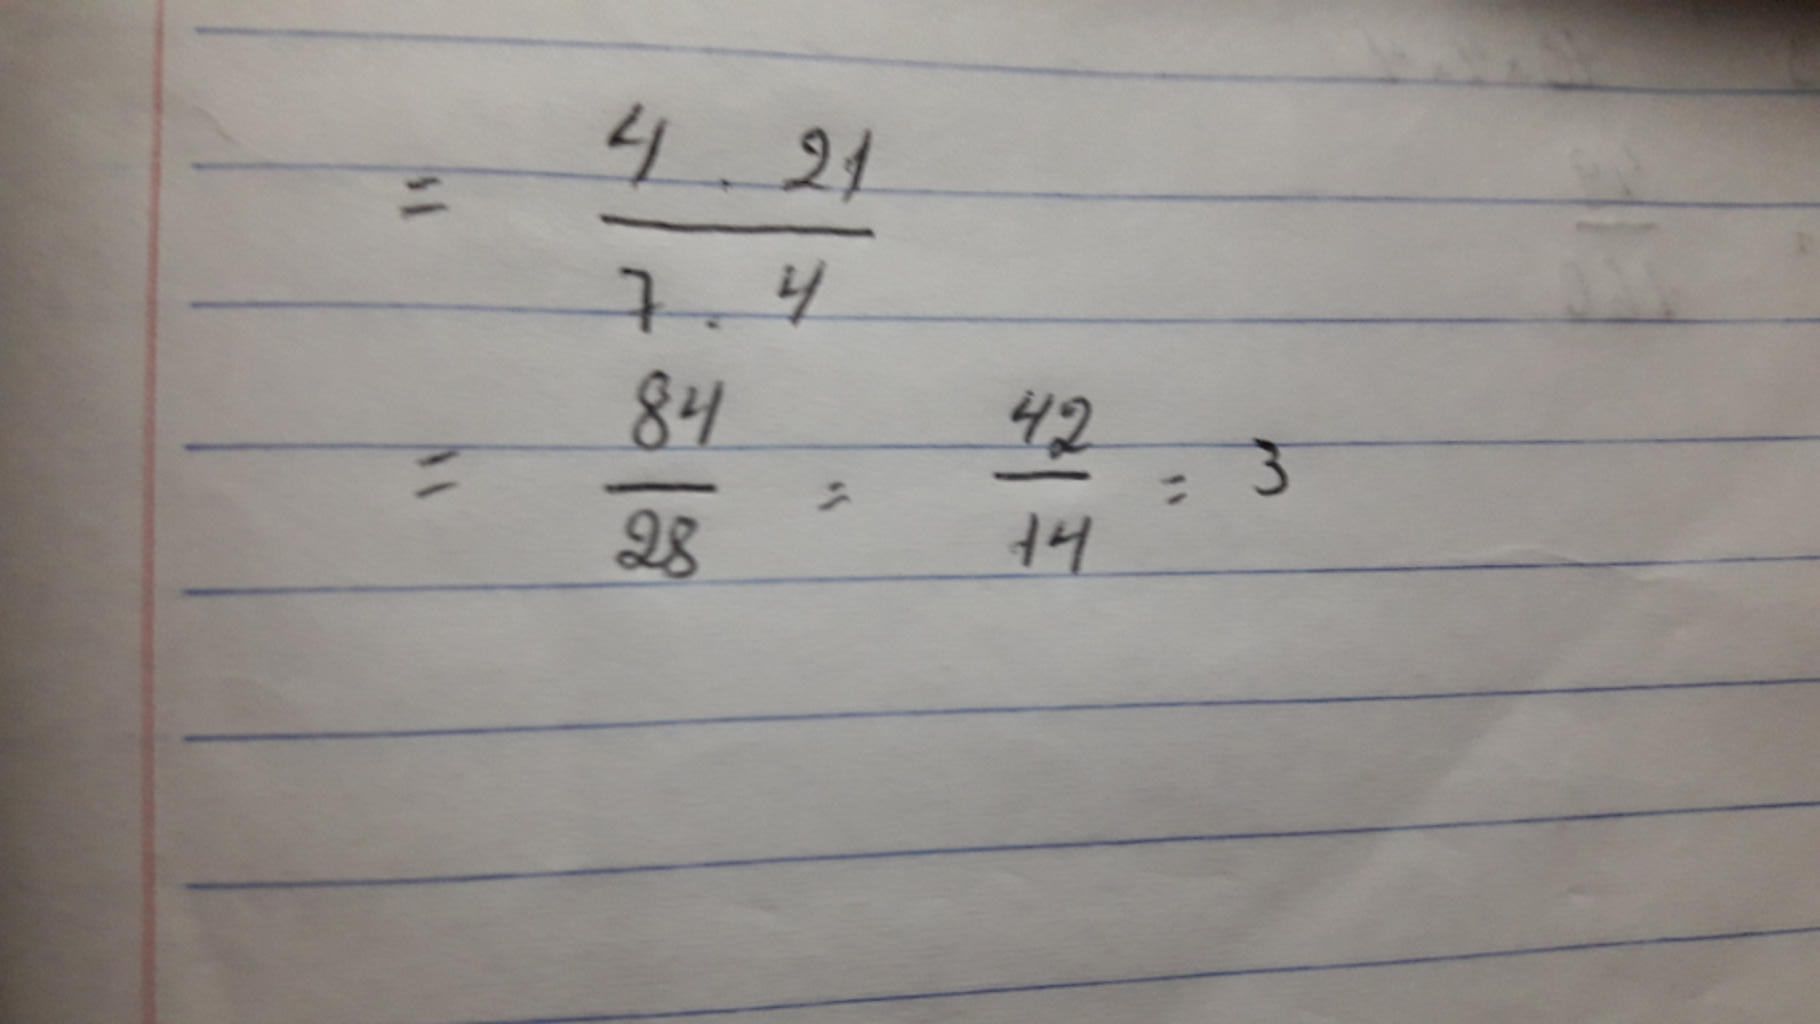 = 4 . 21
7 . 4
= 84 / 28 = 42 / 14 = 3